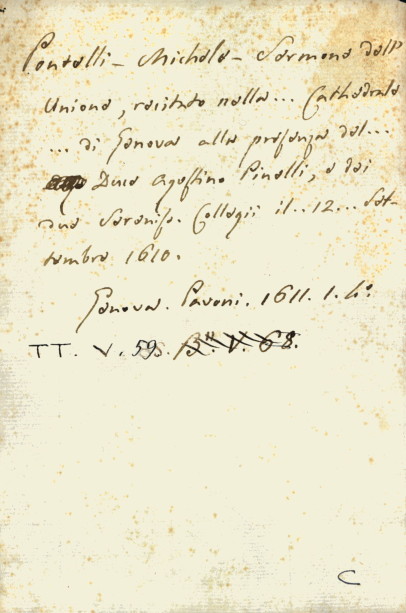 Pontelli - Michele - Sermone dell'
Unione, recitato nella ... Cathedrale
... di Genova alla presenza del ...
Duce Agostino Pinelli, e dei
due Sereniss. Collegii il .. 12 ... Set-
tembre 1610.
Genova. Pavoni. 1611. 1. 4°
TT. V. 59. B" V. 68.
C